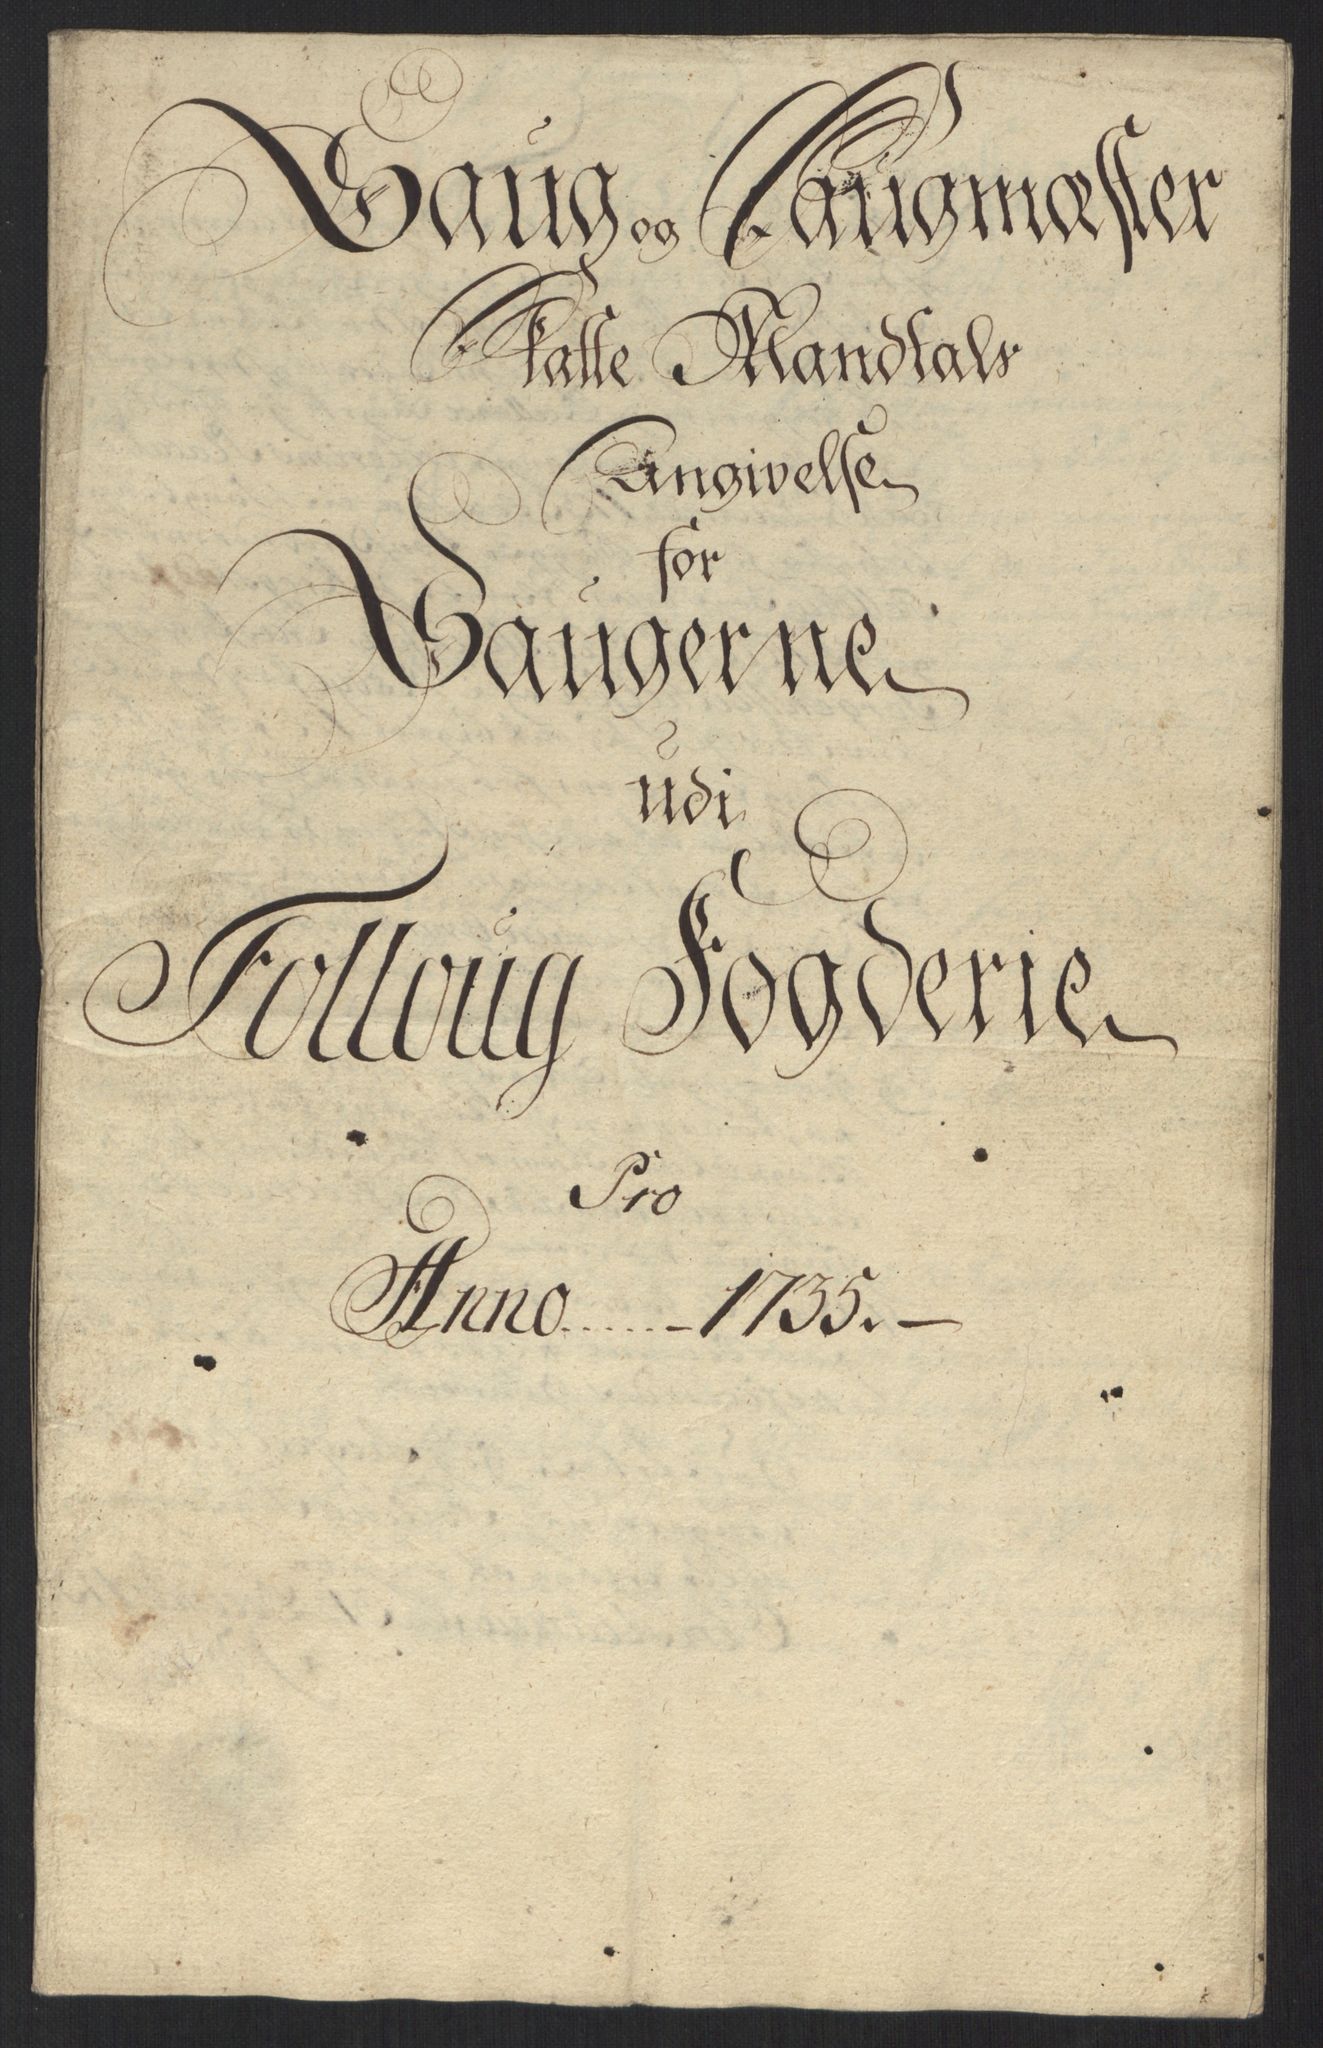 Saug og Saugmæster
Skatte Mandtals
Angivelse
for
Saugerne
udi
Folloug Fogderie
Pro
Anno......-1735.-